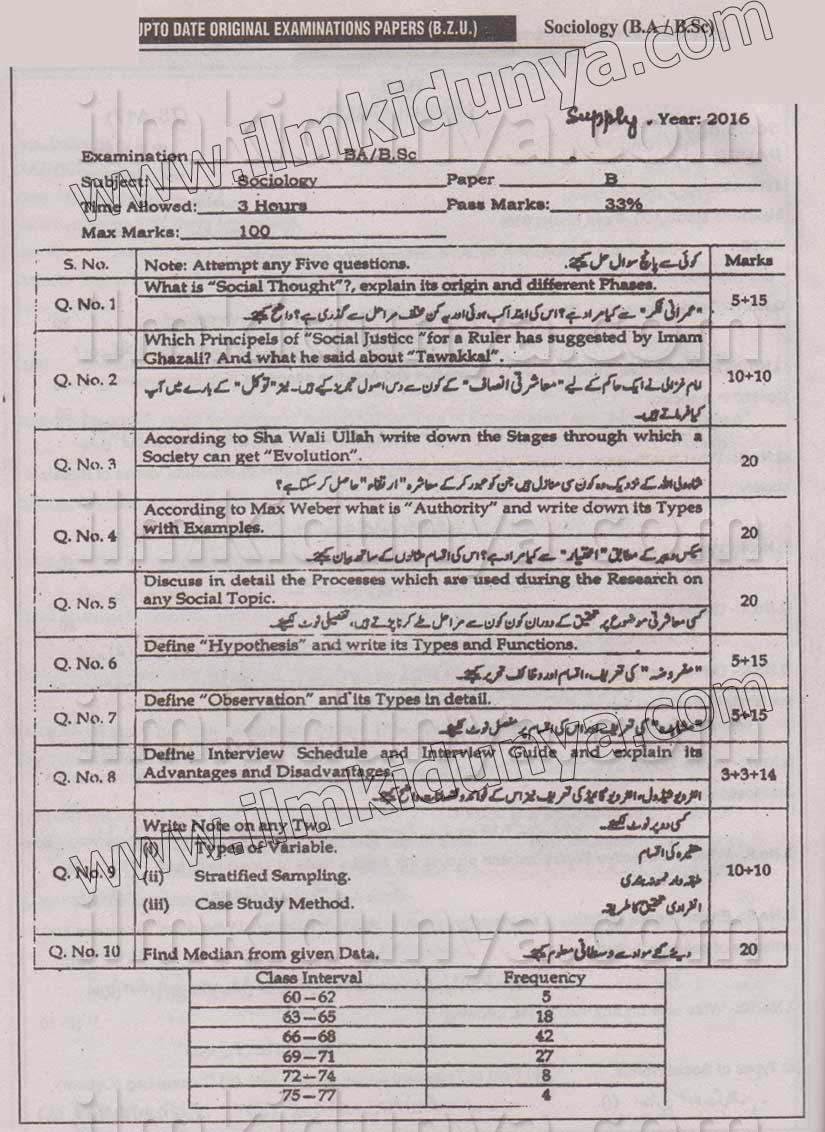 UPTO DATE ORIGINAL EXAMINATIONS PAPERS (B.Z.U.) Sociology (B.A / B.Sc)
Supply. Year: 2016
Examination BA/B.Sc
Subject: Sociology Paper B
Time Allowed: 3 Hours Pass Marks: 33%
Max Marks: 100
S. No. Note: Attempt any Five questions. کوئی سے پانچ سوال حل کیجئے۔ Marks
Q. No. 1 What is "Social Thought"?, explain its origin and different Phases. 5+15
"عمرانی فکر" سے کیا مراد ہے؟ اس کی ابتدا کب ہوئی اور یہ کن مختلف مراحل سے گذری ہے؟ واضح کیجئے۔
Q. No. 2 Which Principels of "Social Justice "for a Ruler has suggested by Imam
Ghazali? And what he said about "Tawakkal". 10+10
امام غزالی نے ایک حاکم کے لیے "معاشرتی انصاف" کے کون سے دس اصول تجویز کیے ہیں۔ نیز "توکل" کے بارے میں آپ
کیا فرماتے ہیں۔
Q. No. 3 According to Sha Wali Ullah write down the Stages through which a
Society can get "Evolution". 20
شاہ ولی اللہ کے نزدیک وہ کون سی منازل ہیں جن کو عبور کر کے معاشرہ "ارتقاء" حاصل کر سکتا ہے؟
Q. No. 4 According to Max Weber what is "Authority" and write down its Types
with Examples. 20
میکس ویبر کے مطابق "اختیار" سے کیا مراد ہے؟ اس کی اقسام مثالوں کے ساتھ بیان کیجئے۔
Q. No. 5 Discuss in detail the Processes which are used during the Research on
any Social Topic. 20
کسی معاشرتی موضوع پر تحقیق کے دوران کون کون سے مراحل طے کرنا پڑتے ہیں، تفصیلی نوٹ لکھیئے۔
Q. No. 6 Define "Hypothesis" and write its Types and Functions. 5+15
"مفروضہ" کی تعریف، اقسام اور وظائف تحریر کیجئے۔
Q. No. 7 Define "Observation" and its Types in detail. 5+15
"مشاہدہ" کی تعریف اور اس کی اقسام پر مفصل نوٹ لکھیئے۔
Q. No. 8 Define Interview Schedule and Interview Guide and explain its
Advantages and Disadvantages. 3+3+14
انٹرویو شیڈول، انٹرویو گائیڈ کی تعریف نیز اس کے فوائد و نقصانات واضح کیجئے۔
Q. No. 9 Write Note on any Two. کسی دو پر نوٹ لکھیئے۔ 10+10
(i) Types of Variable. متغیرہ کی اقسام
(ii) Stratified Sampling. طبقہ دار نمونہ بندی
(iii) Case Study Method. انفرادی تحقیق کا طریقہ
Q. No. 10 Find Median from given Data. دیئے گئے مواد سے وسطانیہ معلوم کیجئے۔ 20
Class Interval Frequency
60–62 5
63–65 18
66–68 42
69–71 27
72–74 8
75–77 4
www.ilmkidunya.com
www.ilmkidunya.com
ilmkidunya.com
ilmkidunya.com
ilmkidunya.com
ilmkidunya.com
ilmkidunya.com